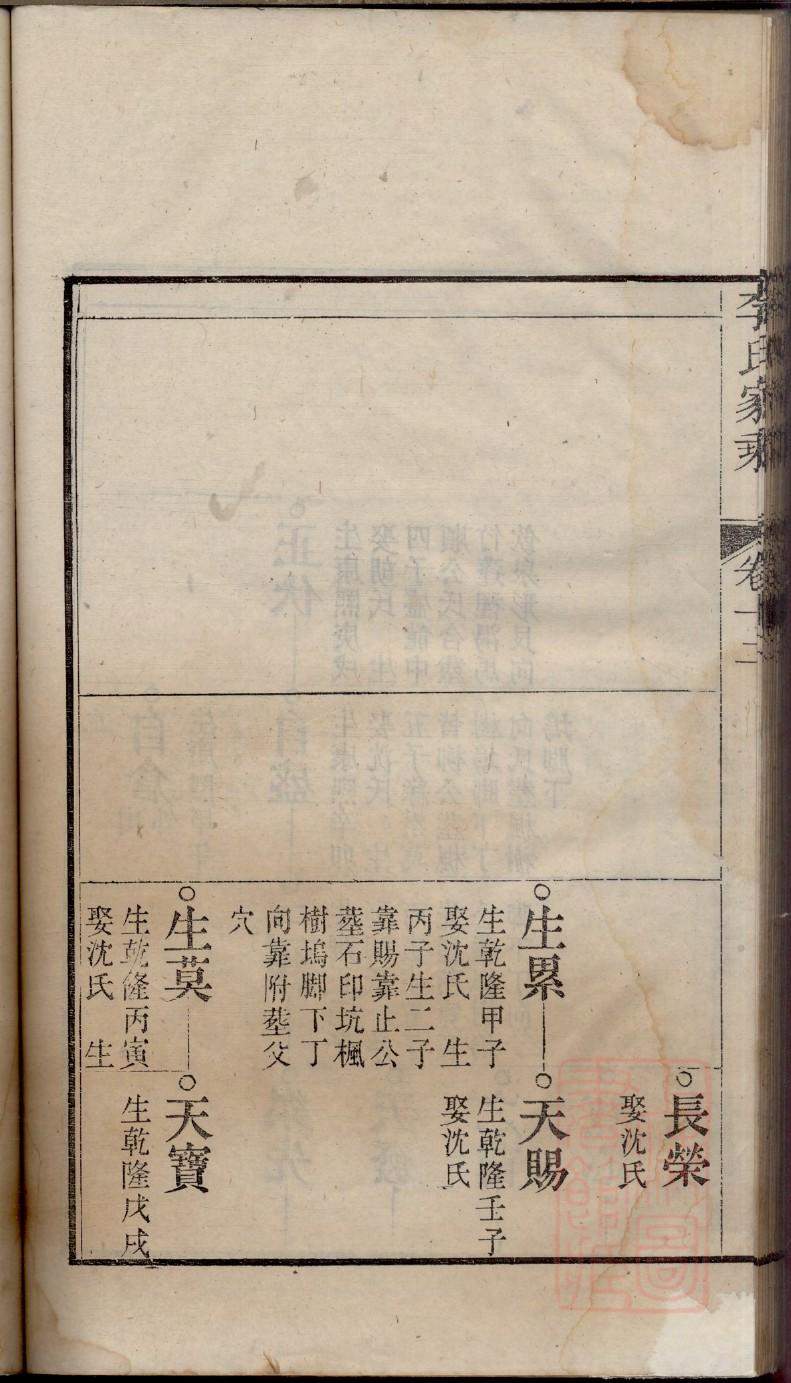 李氏家乘
卷十二
長榮
娶沈氏
生累
生乾隆甲子
娶沈氏　生
丙子生二子
靠賜靠止公
塟石印坑楓
樹塢脚下丁
向靠附塟父
穴
天賜
生乾隆壬子
娶沈氏
生莫
生乾隆丙寅
娶沈氏　生
天寶
生乾隆戊戌